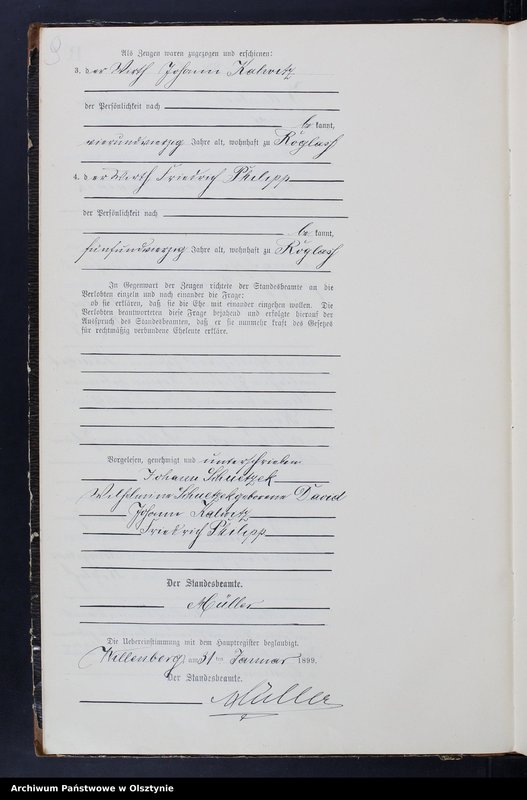 9
Als Zeugen waren zugezogen und erschienen:
3. der Wirth Johann Kalwitz
der Persönlichkeit nach
bekannt,
vierundvierzig Jahre alt, wohnhaft zu Röglass
4. der Wirth Friedrich Philipp
der Persönlichkeit nach
bekannt,
fünfundvierzig Jahre alt, wohnhaft zu Röglass
In Gegenwart der Zeugen richtete der Standesbeamte an die
Verlobten einzeln und nach einander die Frage:
ob sie erklären, daß sie die Ehe mit einander eingehen wollen. Die
Verlobten beantworteten diese Frage bejahend und erfolgte hierauf der
Ausspruch des Standesbeamten, daß er sie nunmehr kraft des Gesetzes
für rechtmäßig verbundene Eheleute erkläre.
Vorgelesen, genehmigt und unterschrieben
Johann Schuetzek
Wilhelmine Schuetzek geborene David
Johann Kalwitz
Friedrich Philipp
Der Standesbeamte.
Müller
Die Uebereinstimmung mit dem Hauptregister beglaubigt.
Willenberg, am 31 ten Januar 1899.
Der Standesbeamte.
Müller
Archiwum Państwowe w Olsztynie